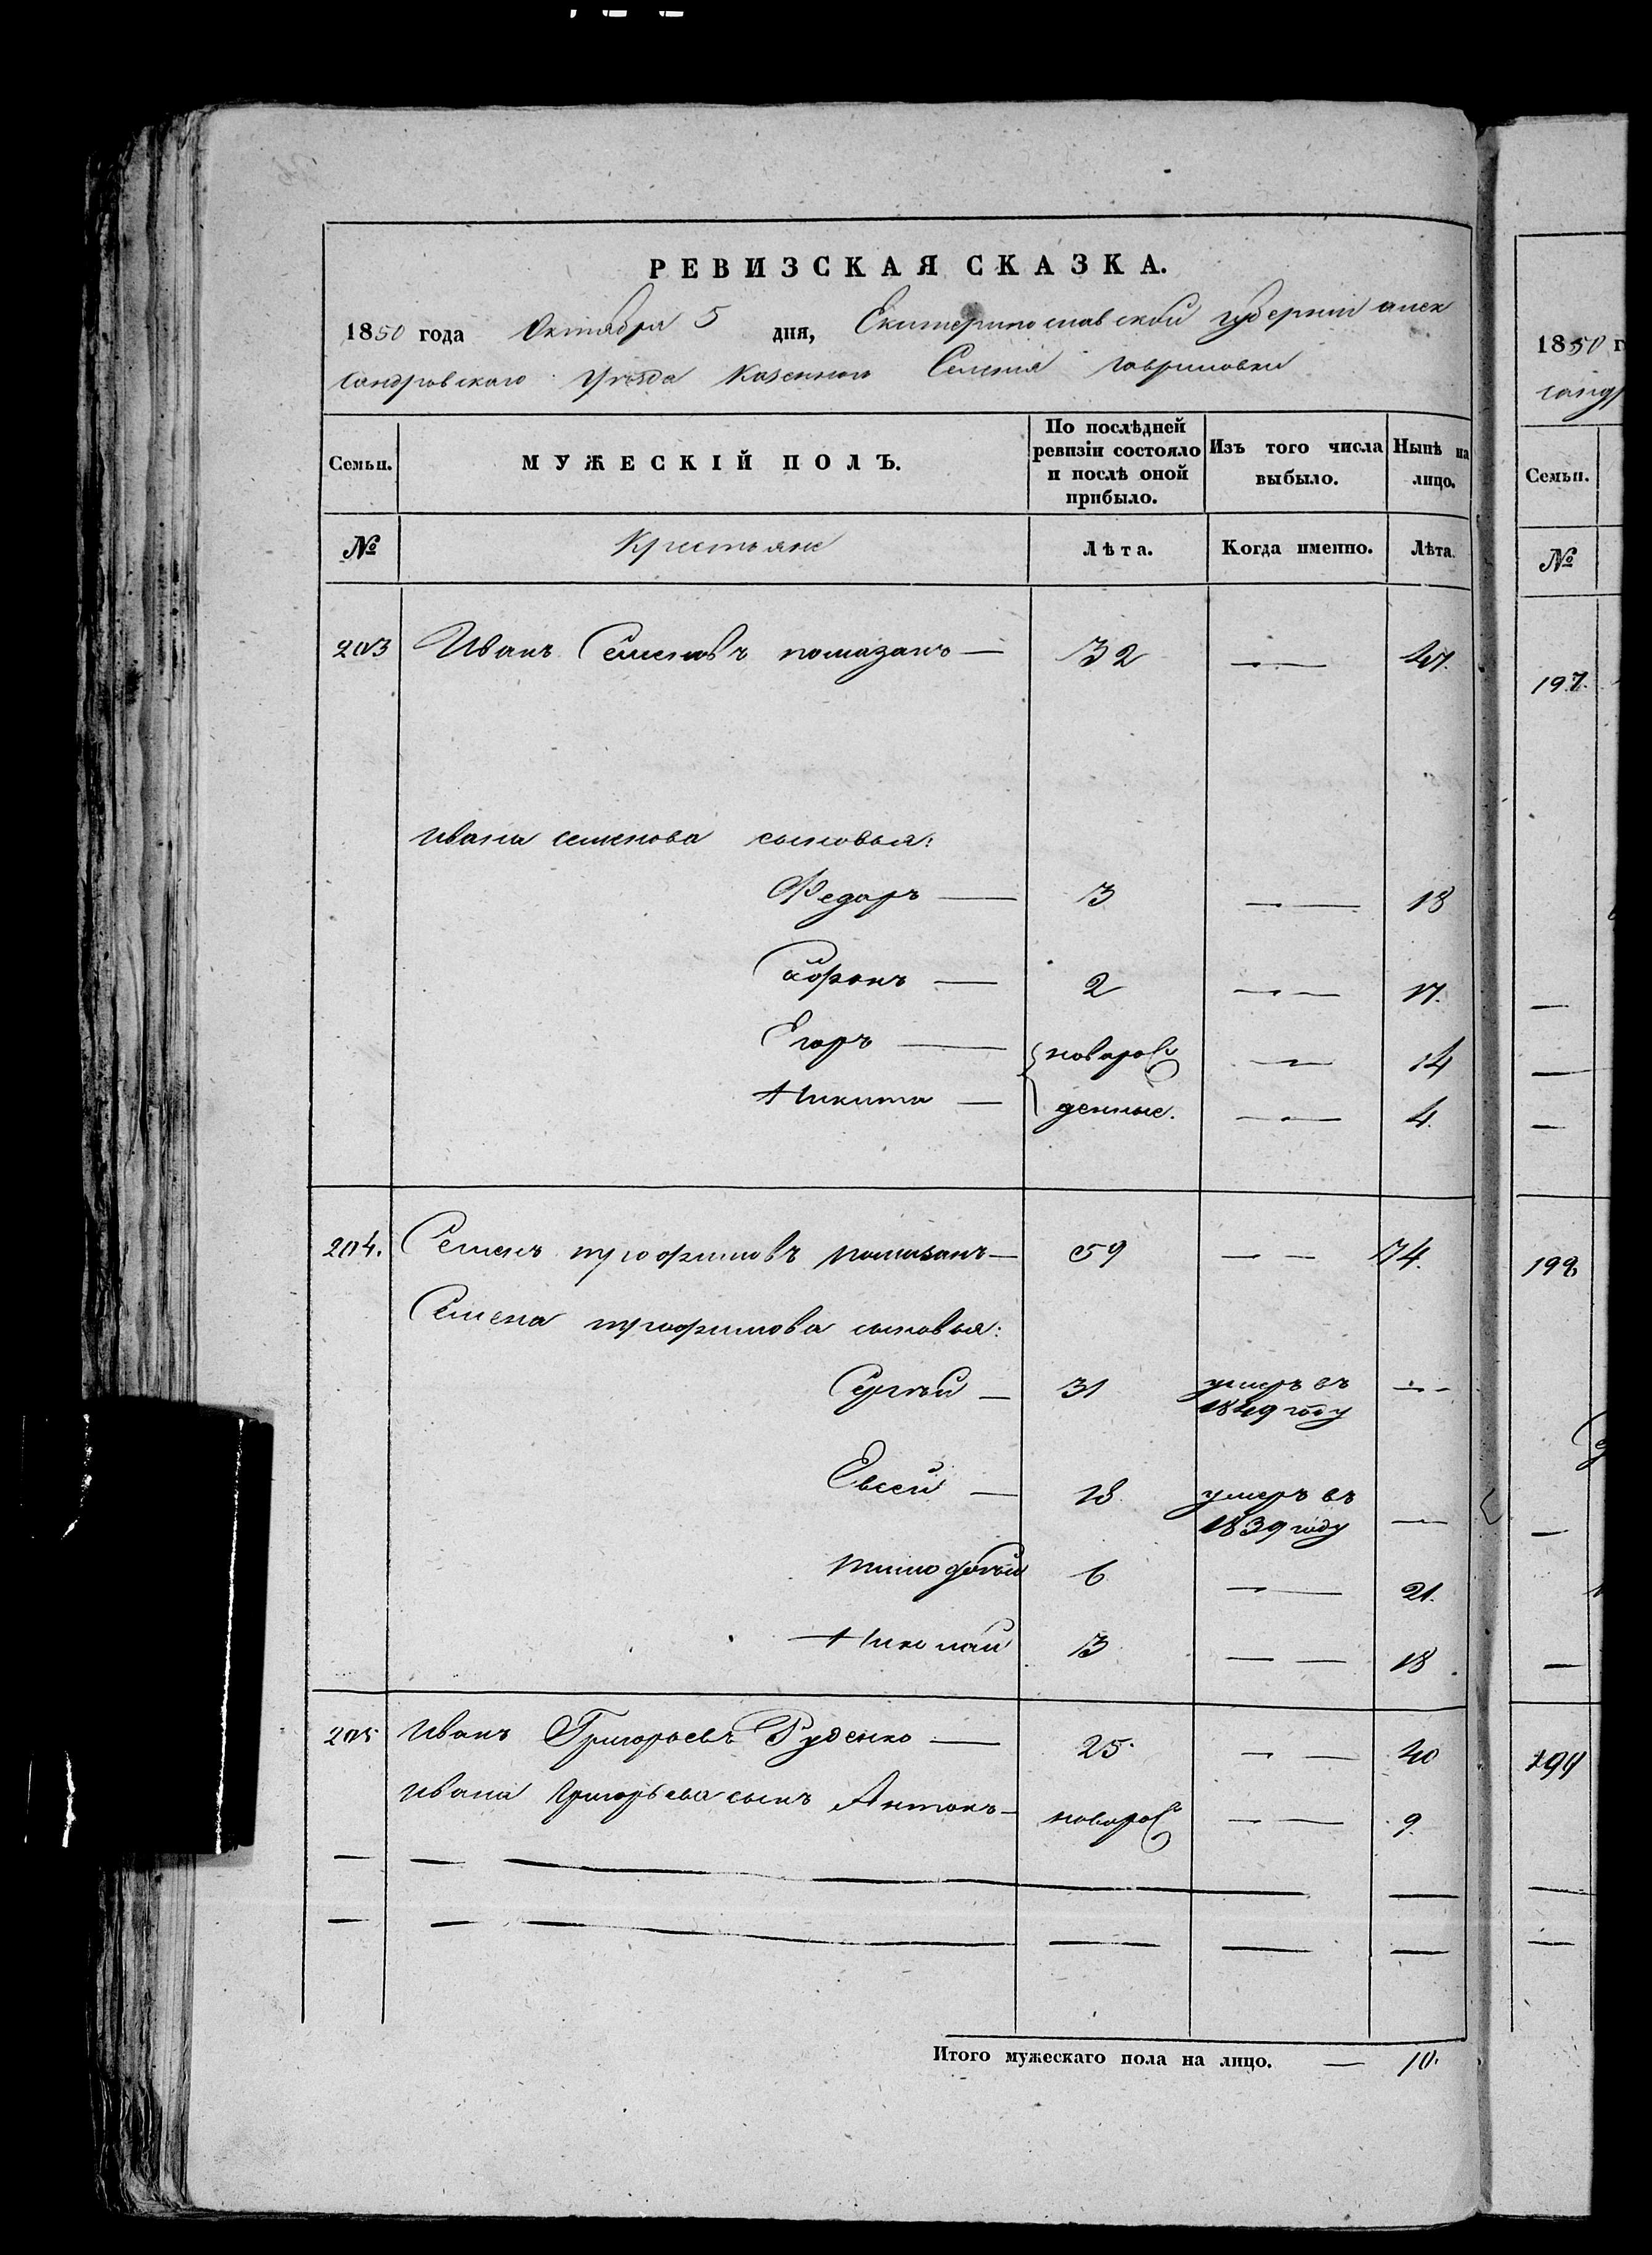 РЕВИЗСКАЯ СКАЗКА.
1850 года Октября 5 дня, Екатеринославской губернии алек
сандровского Уезда Казенного Селения Гавриловки
Семьи. МУЖЕСКІЙ ПОЛЪ. По послѣдней ревизіи состояло и послѣ оной прибыло. Изъ того числа выбыло. Нынѣ на лицо.
№ Крестьяне Лѣта. Когда именно. Лѣта.
203 Иванъ Семеновъ помазанъ — 32 — — 47.
Ивана семенова сыновья:
Федоръ — 3 — — 18
Сафронъ — 2 — — 17.
Егоръ — новорож — — 14
Никита — денные. — — 4.
204. Семенъ трофимовъ помазанъ — 59 — — 74.
Семена трофимова сыновья:
Сергѣй — 31 умеръ въ 1849 году — —
Евсей — 18 умеръ въ 1839 году —
тимофѣй 6 — — 21.
Николай 3 — — 18.
205 Иванъ Григорьевъ Руденко — 25 — — 40
Ивана Григорьева сынъ Антонъ — новорож — — 9.
Итого мужескаго пола на лицо. — 10.
1850 г
санд
Семьи.
№
197.
198
199